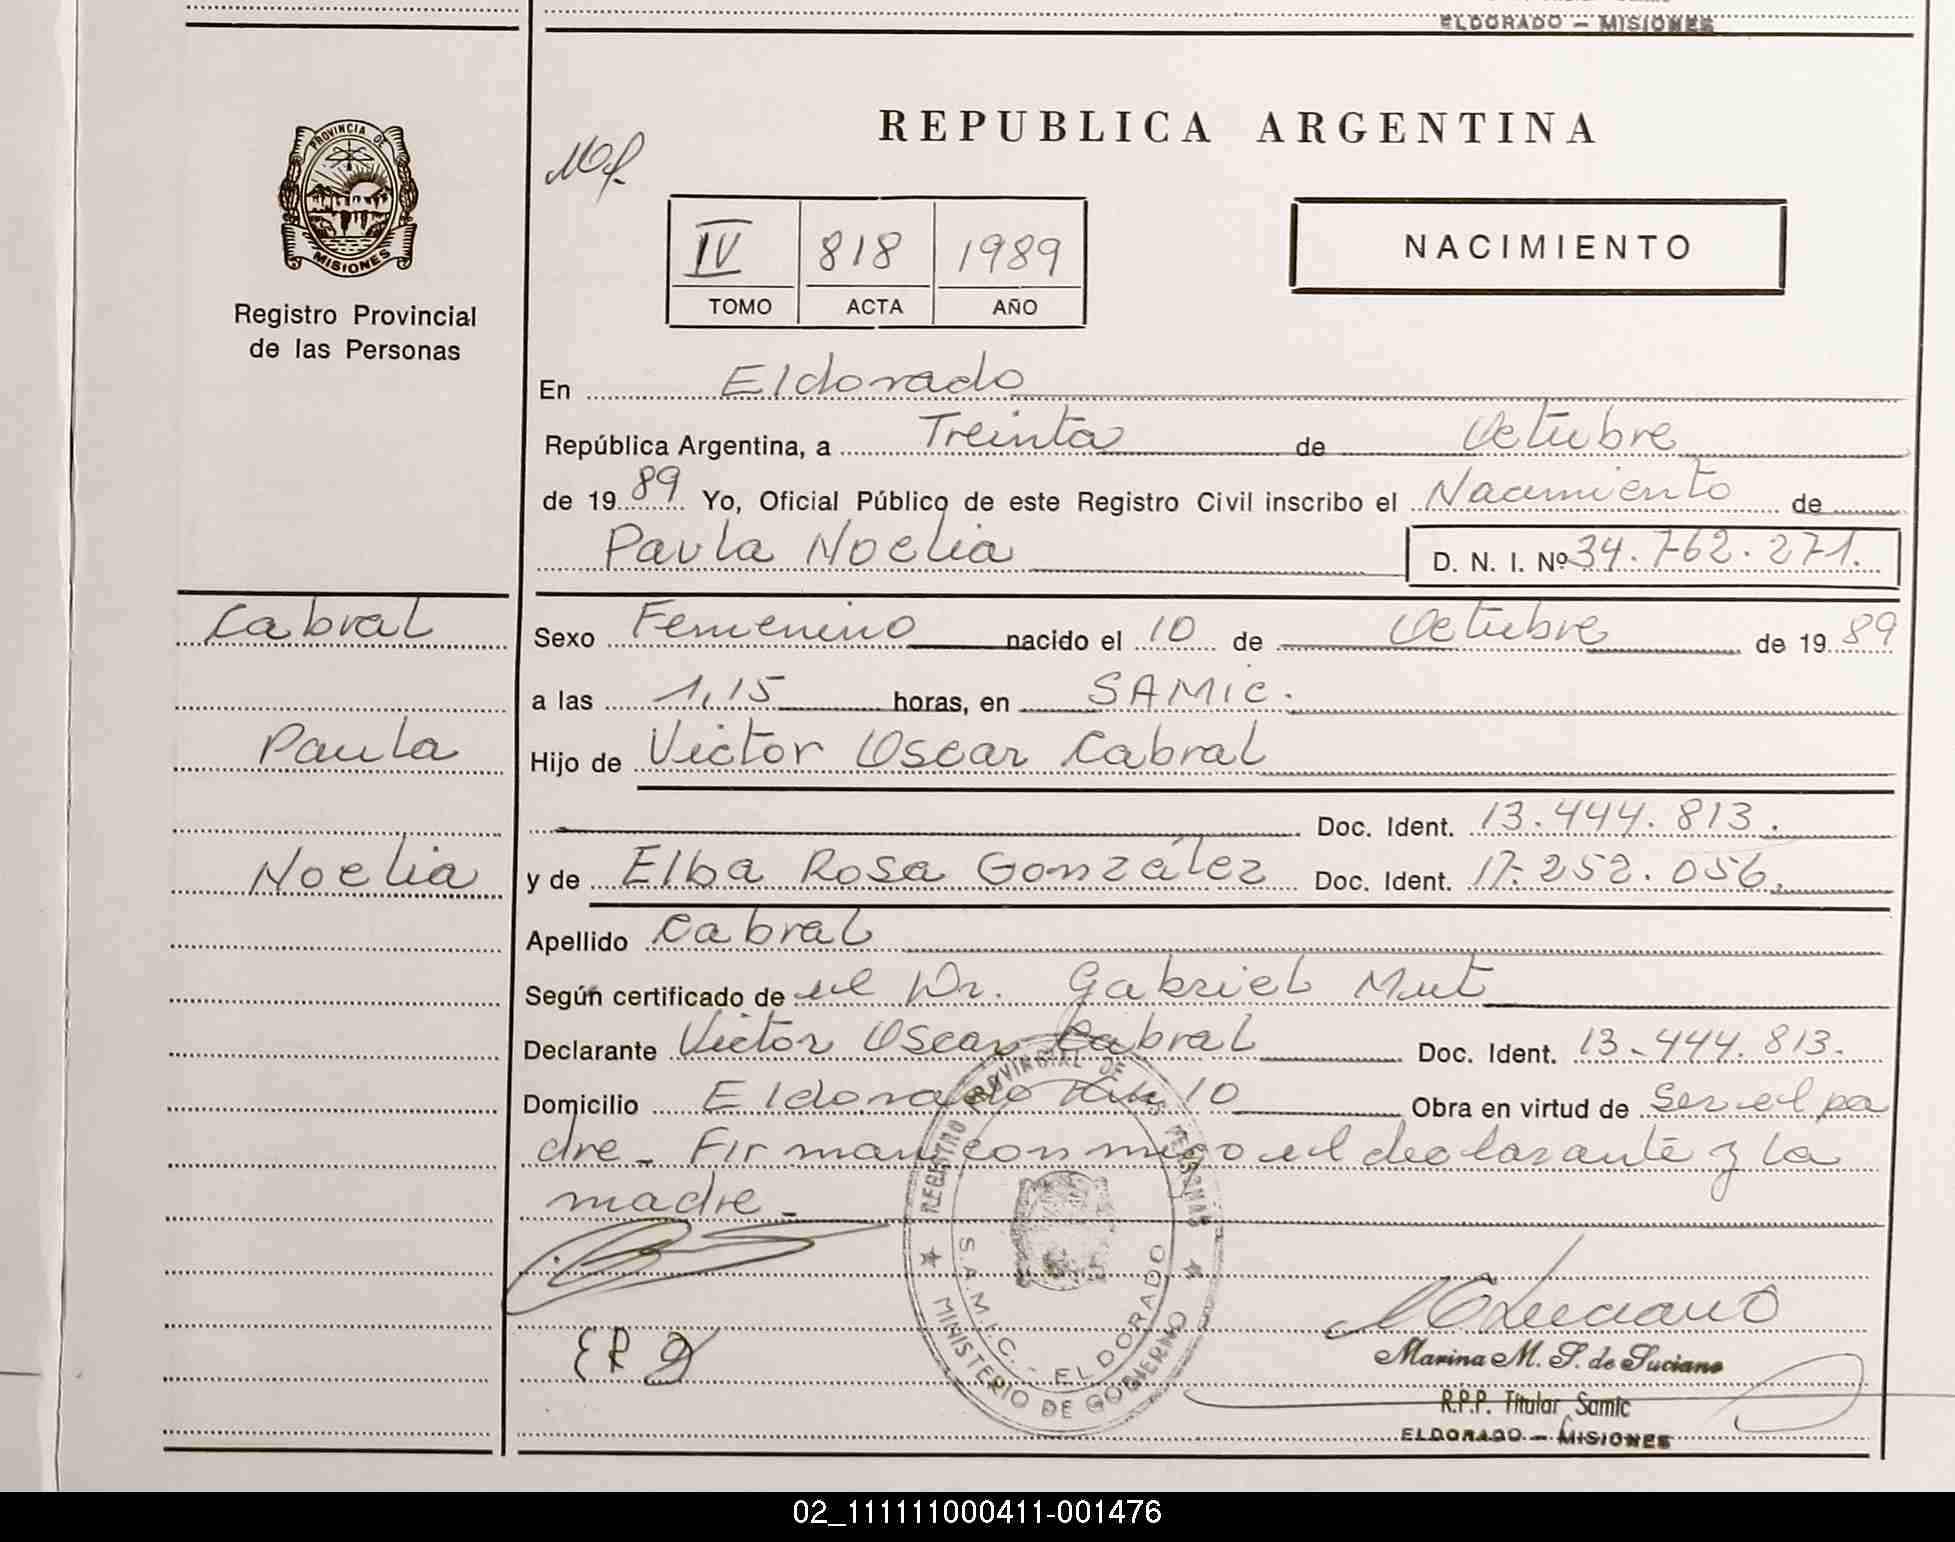 ELDORADO — MISIONES
PROVINCIA DE
MISIONES
Registro Provincial
de las Personas
REPUBLICA ARGENTINA
IV 818 1989
TOMO ACTA AÑO
NACIMIENTO
En Eldorado
República Argentina, a Treinta de Octubre
de 19 89 Yo, Oficial Público de este Registro Civil inscribo el Nacimiento de
Paula Noelia D. N. I. Nº 34.762.271.
Cabral
Paula
Noelia
Sexo Femenino nacido el 10 de Octubre de 19 89
a las 1,15 horas, en SAMIC.
Hijo de Victor Oscar Cabral
Doc. Ident. 13.444.813.
y de Elba Rosa González Doc. Ident. 17.252.056.
Apellido Cabral
Según certificado de el Dr. Gabriel Mut
Declarante Victor Oscar Cabral Doc. Ident. 13.444.813.
Domicilio Eldorado Km 10 Obra en virtud de ser el pa
dre - Firman conmigo el declarante y la
madre -
REGISTRO PROVINCIAL DE LAS PERSONAS
S.A.M.I.C. - ELDORADO
MINISTERIO DE GOBIERNO
Marina M. S. de Luciano
R.P.P. Titular Samic
ELDORADO — MISIONES
02_111111000411-001476